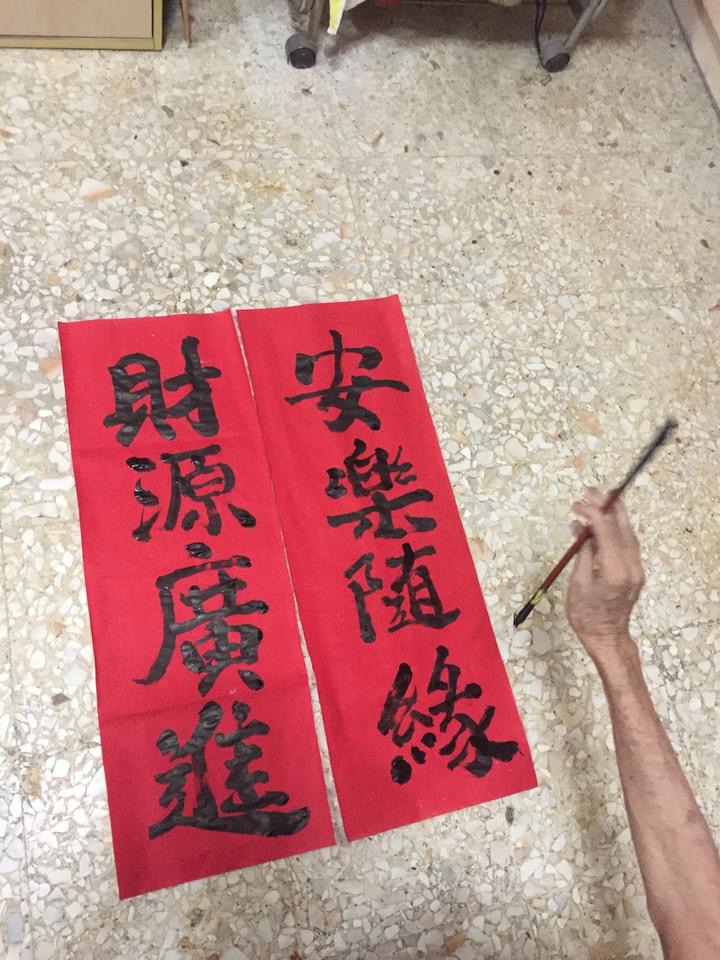 安樂随緣
財源廣進